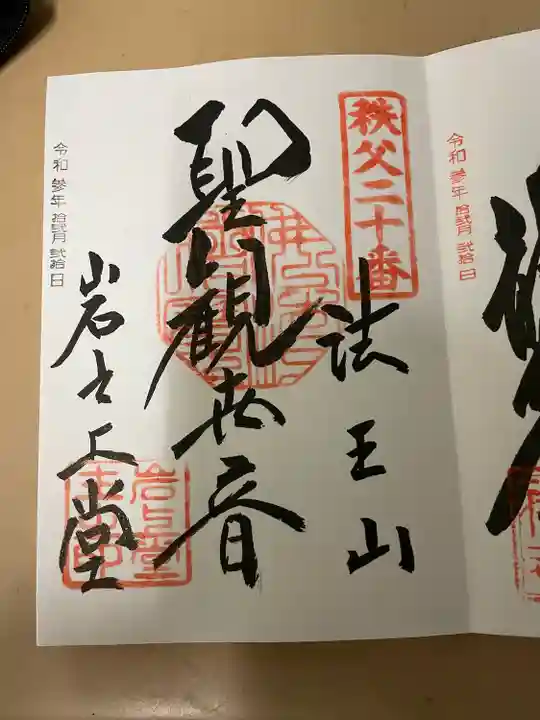 令和 参年 拾弐月 弐拾日
秩父二十番
法王山
聖観世音
岩之上堂
岩上堂
令和 参年 拾弐月 弐拾日